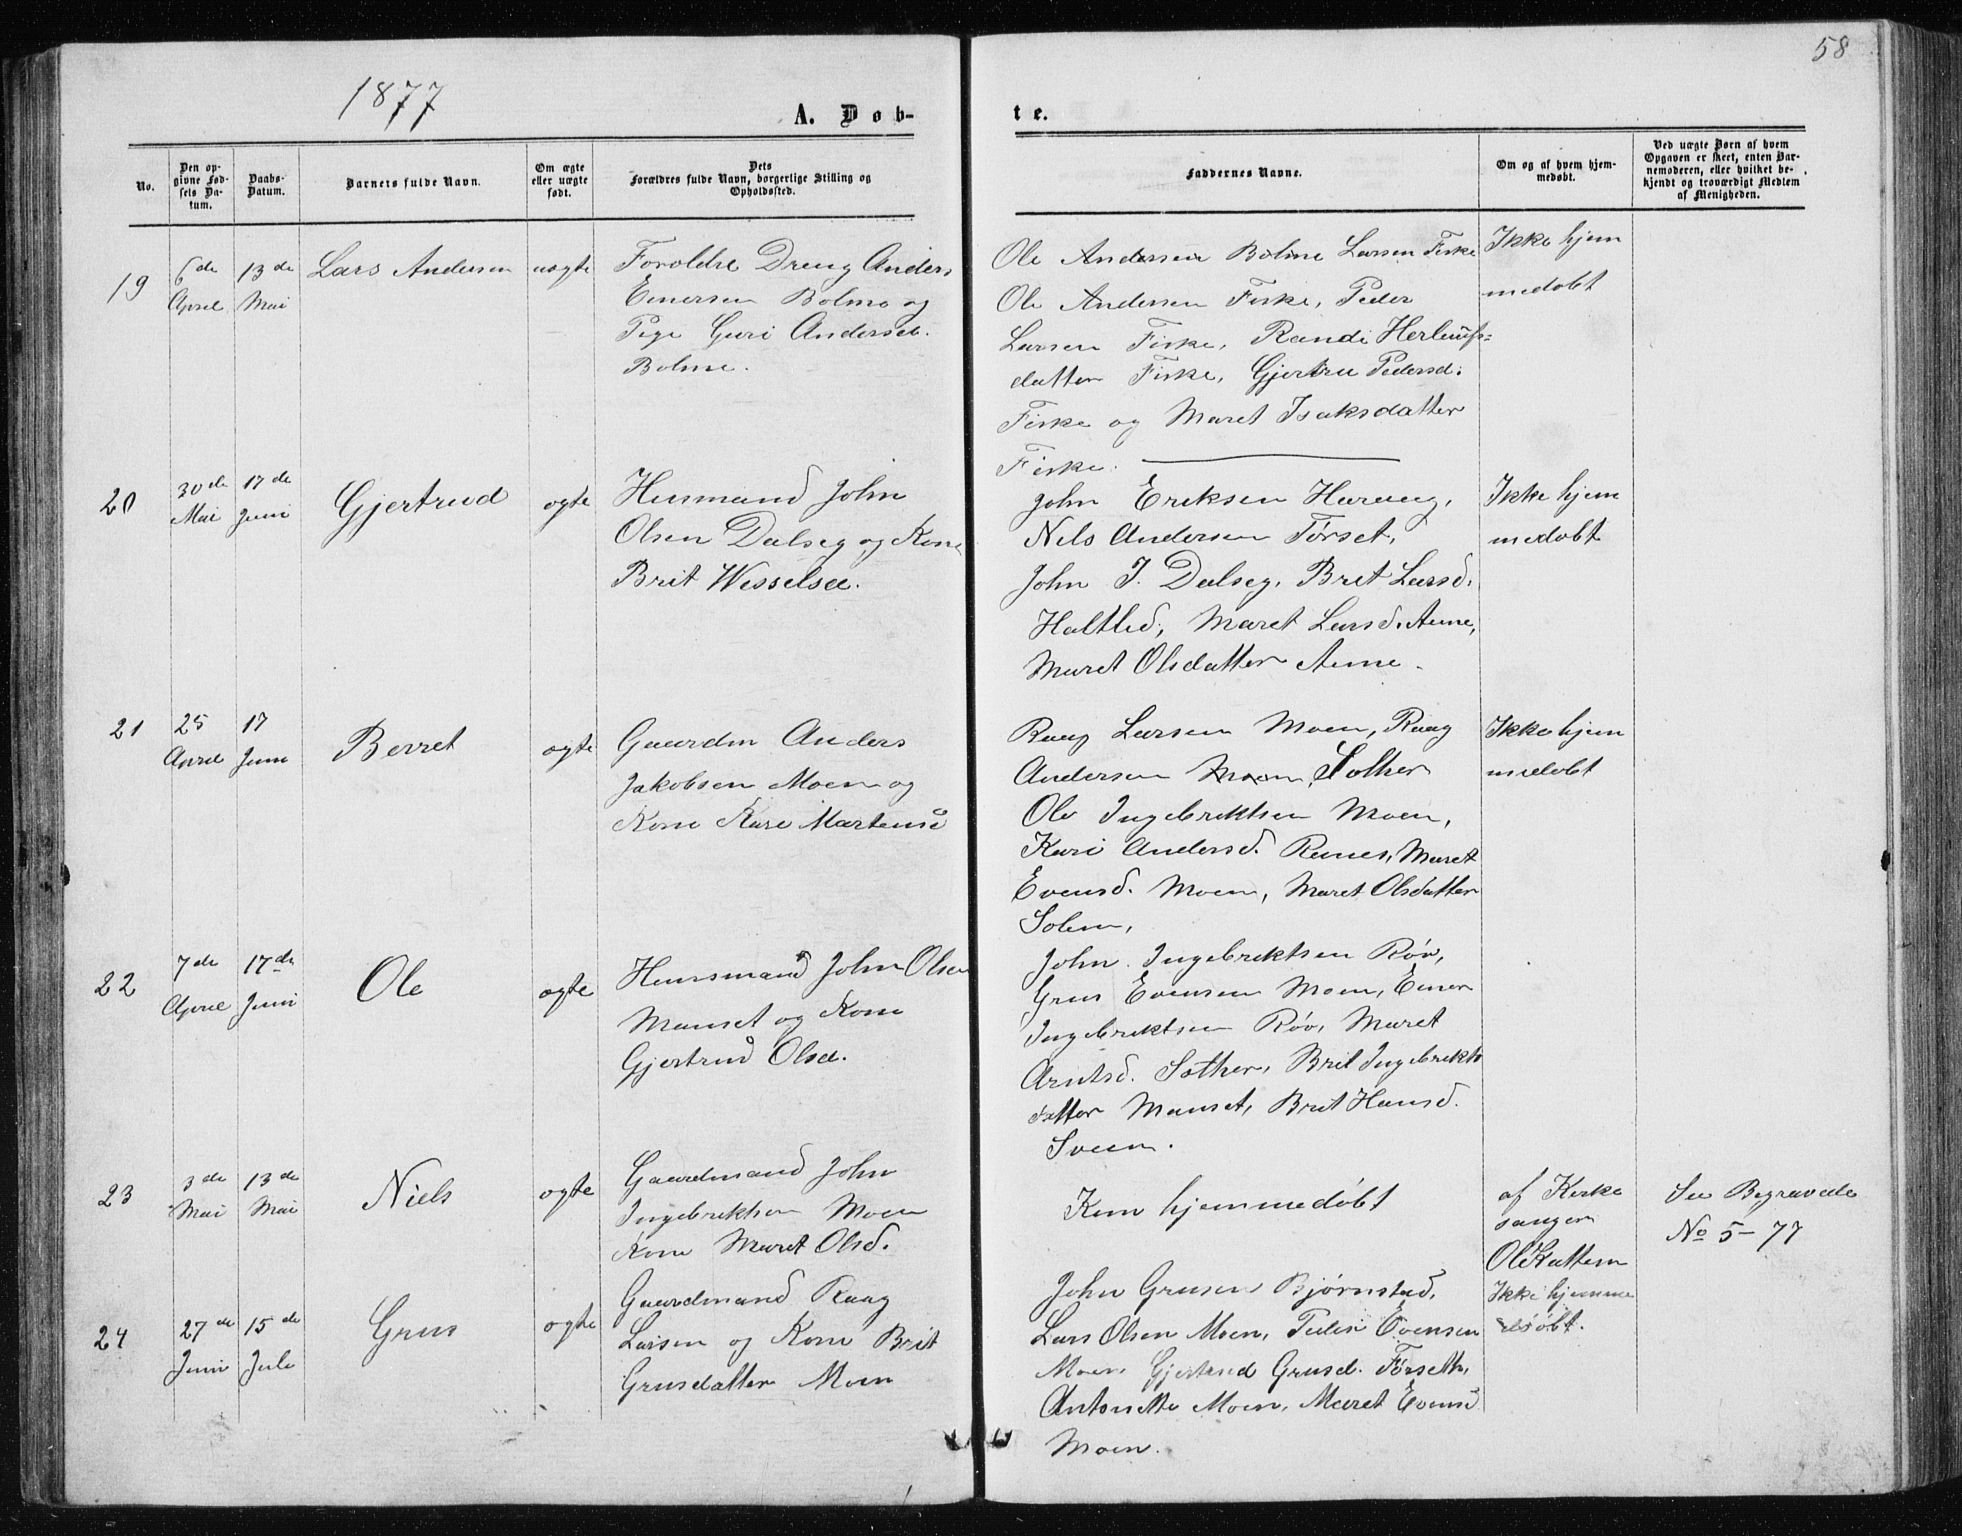 58
1877
A. Døb-
te.
No.
Den op-
givne Fød-
sels Da-
tum.
Daabs-
Datum.
Barnets fulde Navn.
Om ægte
eller uægte
født.
Dets
Forældres fulde Navn, borgerlige Stilling og
Opholdssted.
Faddernes Navne.
Om og af hvem hjem-
medøbt.
Ved uægte Børn af hvem
Opgaven er skeet, enten Bar-
nemoderen, eller hvilket be-
kjendt og troværdigt Medlem
af Menigheden.
19
6de
April
13de
Mai
Lars Andersen
uægte
Foroldre Dreng Anders
Einersen Bolme og
Pige Guri Andersd.
Bolme.
Ole Andersen Bolme Larsen Fiske
Ole Andersen Fiske, Peder
Larsen Fiske, Randi Herlaufs=
datter Fiske, Gjertru Pedersd.
Fiske og Maret Isaksdatter
Fiske.
Ikke hjem
medøbt
20
30de
Mai
17de
Juni
Gjertrud
ogte
Husmand John
Olsen Dalseg og Kone
Brit Wesselsd.
John Eriksen Harang,
Nels Andersen Tørset,
John J. Dalseg, Brit Larsd.
Haltlid, Maret Larsd. Aune,
Maret Olsdatter Aune.
Ikke hjem
medøbt
21
25
April
17
Juni
Berret
ogte
Gaardm Anders
Jakobsen Moen og
Kone Kari Martensd
Raag Larsen Moen, Raag
Andersen Moen, Solher
Ole Ingebriktsen Moen,
Kari Andersd. Ranes, Maret
Evensd. Moen, Maret Olsdatter
Solem,
Ikke hjem
medøbt
22
7de
April
17de
Juni
Ole
ogte
Huusmand John Olsen
Manset og Kone
Gjertrud Olsd.
John Ingebriktsen Røv,
Grus Evensen Moen, Einer
Ingebriktsen Røv, Maret
Arntsd. Sæther, Brit Ingebrikts
datter Manset, Brit Hansd.
Sveen.
23
3de
Mai
13de
Mai
Niels
ogte
Gaardmand John
Ingebriktsen Moen
Kone Maret Olsd.
Kun hjemmedøbt
af Kirke
sanger
Ole Kattem
See Begravede
No 5-77
24
27de
Juni
15de
Jule
Grus
ogte
Gaardmand Raag
Larsen og Kone Brit
Grusdatter Moen
John Grusen Bjørnstad,
Lars Olsen Moen, Peder Evensen
Moen, Gjertrud Grusd. Førseth,
Antonette Moen, Maret Evensd
Moen.
Ikke hjemme
døbt.